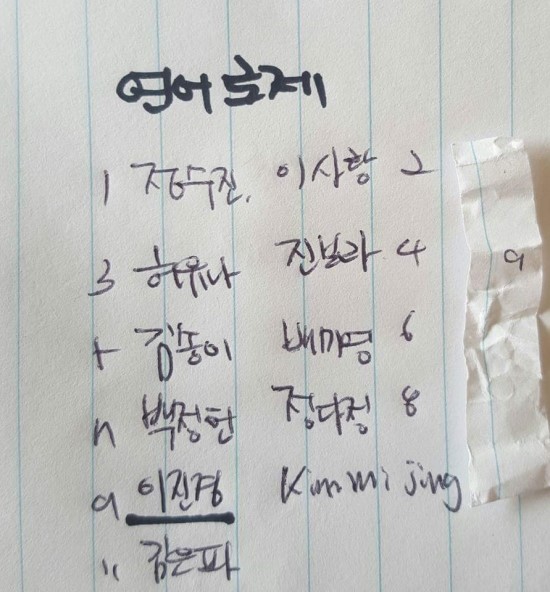 영어 숙제
1 정수진, 이사항 2
3 허유나 진보라 4
김동이 배미영 6
백정현 정다정 8
9 이진경 Kim mi jing
11 김은파
9